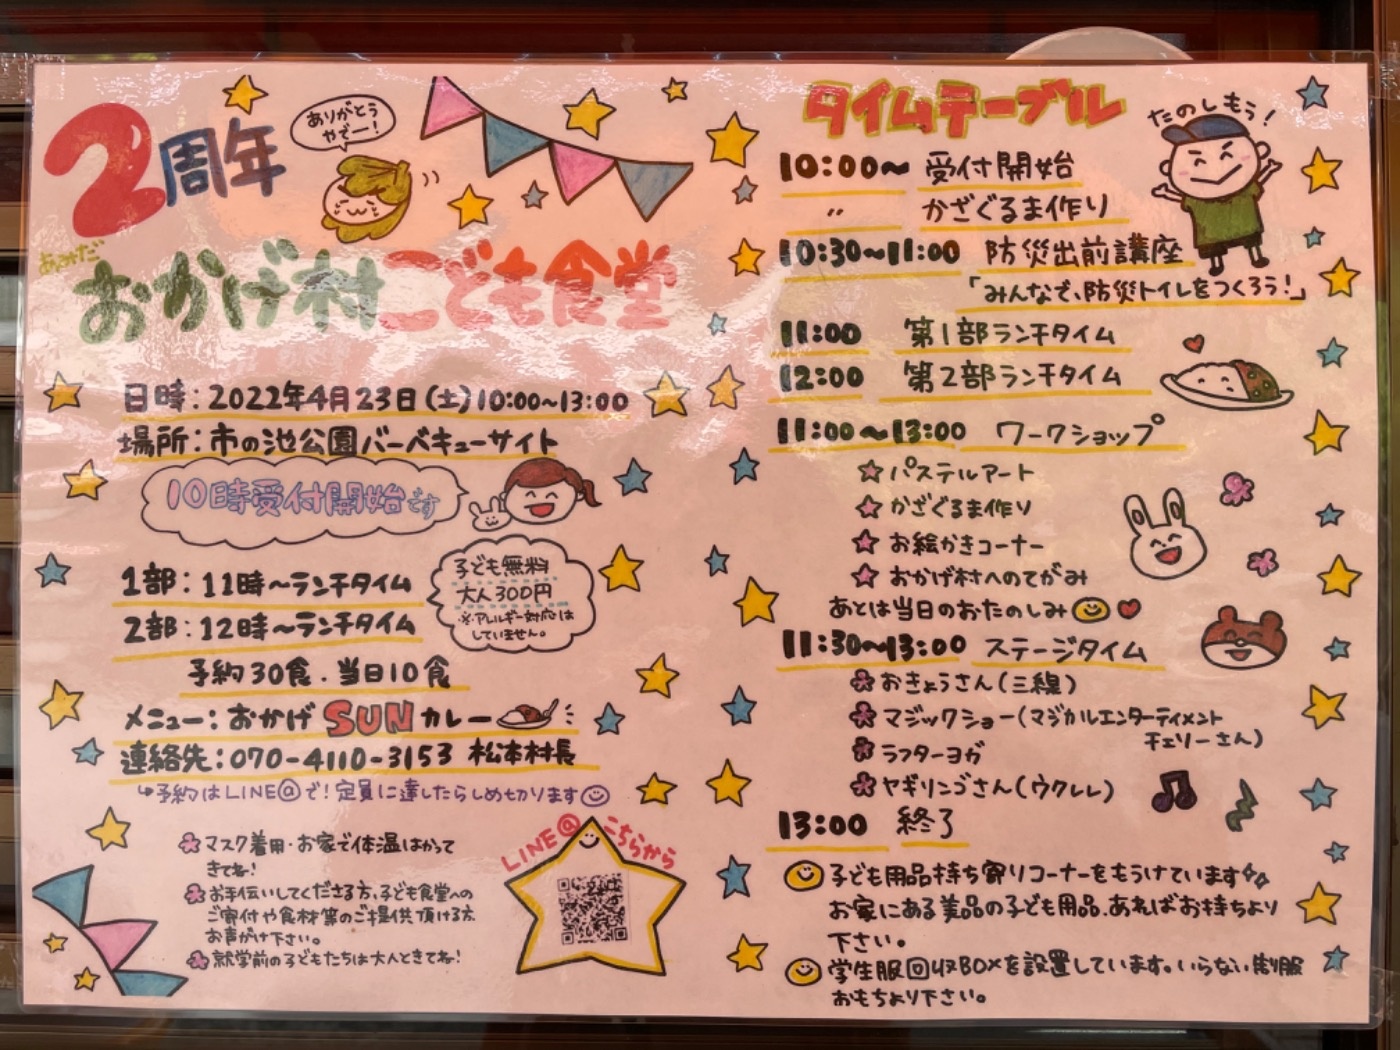 2周年
ありがとう
やでー!
あみだ
おかげ村こども食堂
日時:2022年4月23日(土)10:00~13:00
場所:市の池公園バーベキューサイト
10時受付開始です
1部:11時~ランチタイム
2部:12時~ランチタイム
子ども無料
大人300円
※アレルギー対応は
していません。
予約30食.当日10食
メニュー:おかげSUNカレー
連絡先:070-4110-3153 松本村長
↳予約はLINE@で!定員に達したらしめ切ります
マスク着用・お家で体温はかって
きてね!
お手伝いしてくださる方、子ども食堂への
ご寄付や食材等のご提供頂ける方
お声がけ下さい。
就学前の子どもたちは大人ときてね!
LINE@こちらから
タイムテーブル
たのしもう!
10:00~ 受付開始
〃 かざぐるま作り
10:30~11:00 防災出前講座
「みんなで、防災トイレをつくろう!」
11:00 第1部ランチタイム
12:00 第2部ランチタイム
11:00~13:00 ワークショップ
☆パステルアート
☆かざぐるま作り
☆お絵かきコーナー
☆おかげ村へのてがみ
あとは当日のおたのしみ
11:30~13:00 ステージタイム
おきょうさん(三線)
マジックショー(マジカルエンターティメント
チェリーさん)
ラフターヨガ
ヤギリンゴさん(ウクレレ)
13:00 終了
子ども用品持ち寄りコーナーをもうけています
お家にある美品の子ども用品、あればお持ちより
下さい。
学生服回収BOXを設置しています。いらない制服
おもちより下さい。